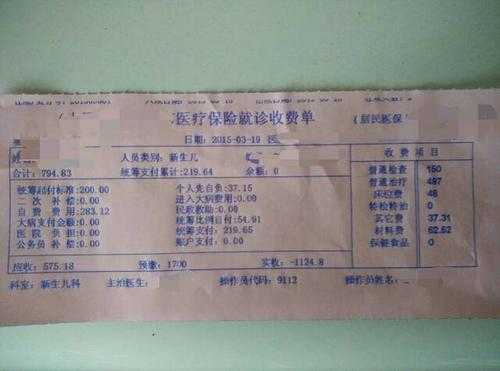 医疗保险就诊收费单
(居民医保
日期：2015-03-19
人员类别：新生儿
收 费 项 目
合计：794.83 统筹支付累计：219.64 余额：0
普通检查 150
统筹起付标准：200.00 个人先自负：37.15
普通治疗 497
二 次 补 偿：0.00 进入大病费用：0.00
床位费 48
自 费 费 用：283.12 民政救助：0.00
轻松轮治 0
大病支付金额：0.00 统筹比例自付：54.91
其它费 37.31
医 院 负 担：0.00 统筹支付：219.65
材料费 62.52
公务员 补 偿：0.00 账户支付：0.00
保健食品 0
应收：575.18 预缴：1700 实收：-1124.8
科室：新生儿科 主治医生： 操作员代码：9112 操作员姓名：